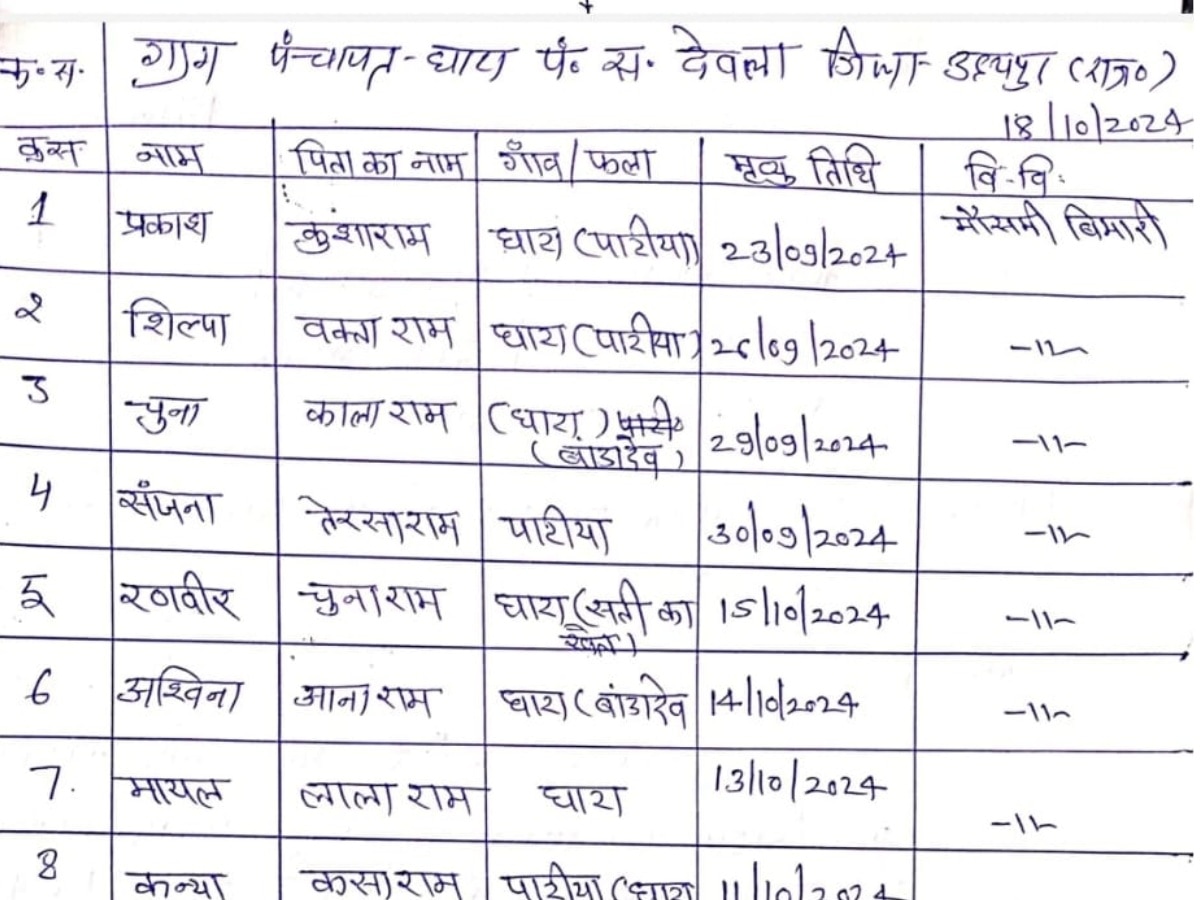 क्र.स. ग्राम पंचायत-घारा पं. स. देवला जिला उदयपुर (राज०)
18/10/2024
क्रस नाम पिता का नाम गाँव/फला मृत्यु तिथि वि.वि.
1 प्रकाश कुंशाराम घारा (पाटीया) 23/09/2024 मौसमी बिमारी
2 शिल्पा वक्ता राम घारा (पाटीया) 26/09/2024 -11-
3 चुना काला राम (घारा) 29/09/2024 -11-
(बांडादेव)
4 संजना तेरसाराम पाटीया 30/09/2024 -11-
5 रणवीर चुनाराम घारा (सती का 15/10/2024 -11-
खेत)
6 अश्विना आनाराम घारा (बांडादेव 14/10/2024 -11-
7. मायल लाला राम घारा 13/10/2024 -11-
8 कन्या कसाराम पाटीया (घारा 11/10/2024